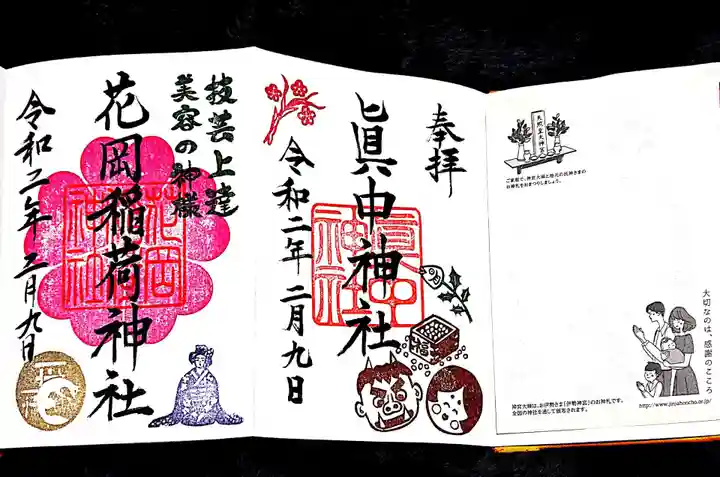 奉拝
眞中神社
令和二年二月九日
眞中
神社
福
技芸上達
美容の神様
花岡稲荷神社
令和二年二月九日
花岡
神社
天照皇大神宮
ご家庭で、神宮大麻と地元の氏神さまの
お神札をおまつりしましょう。
大切なのは、感謝のこころ
神宮大麻は、お伊勢さま「伊勢神宮」のお神札です。
全国の神社を通して頒布されます。
http://www.jinjahoncho.or.jp/